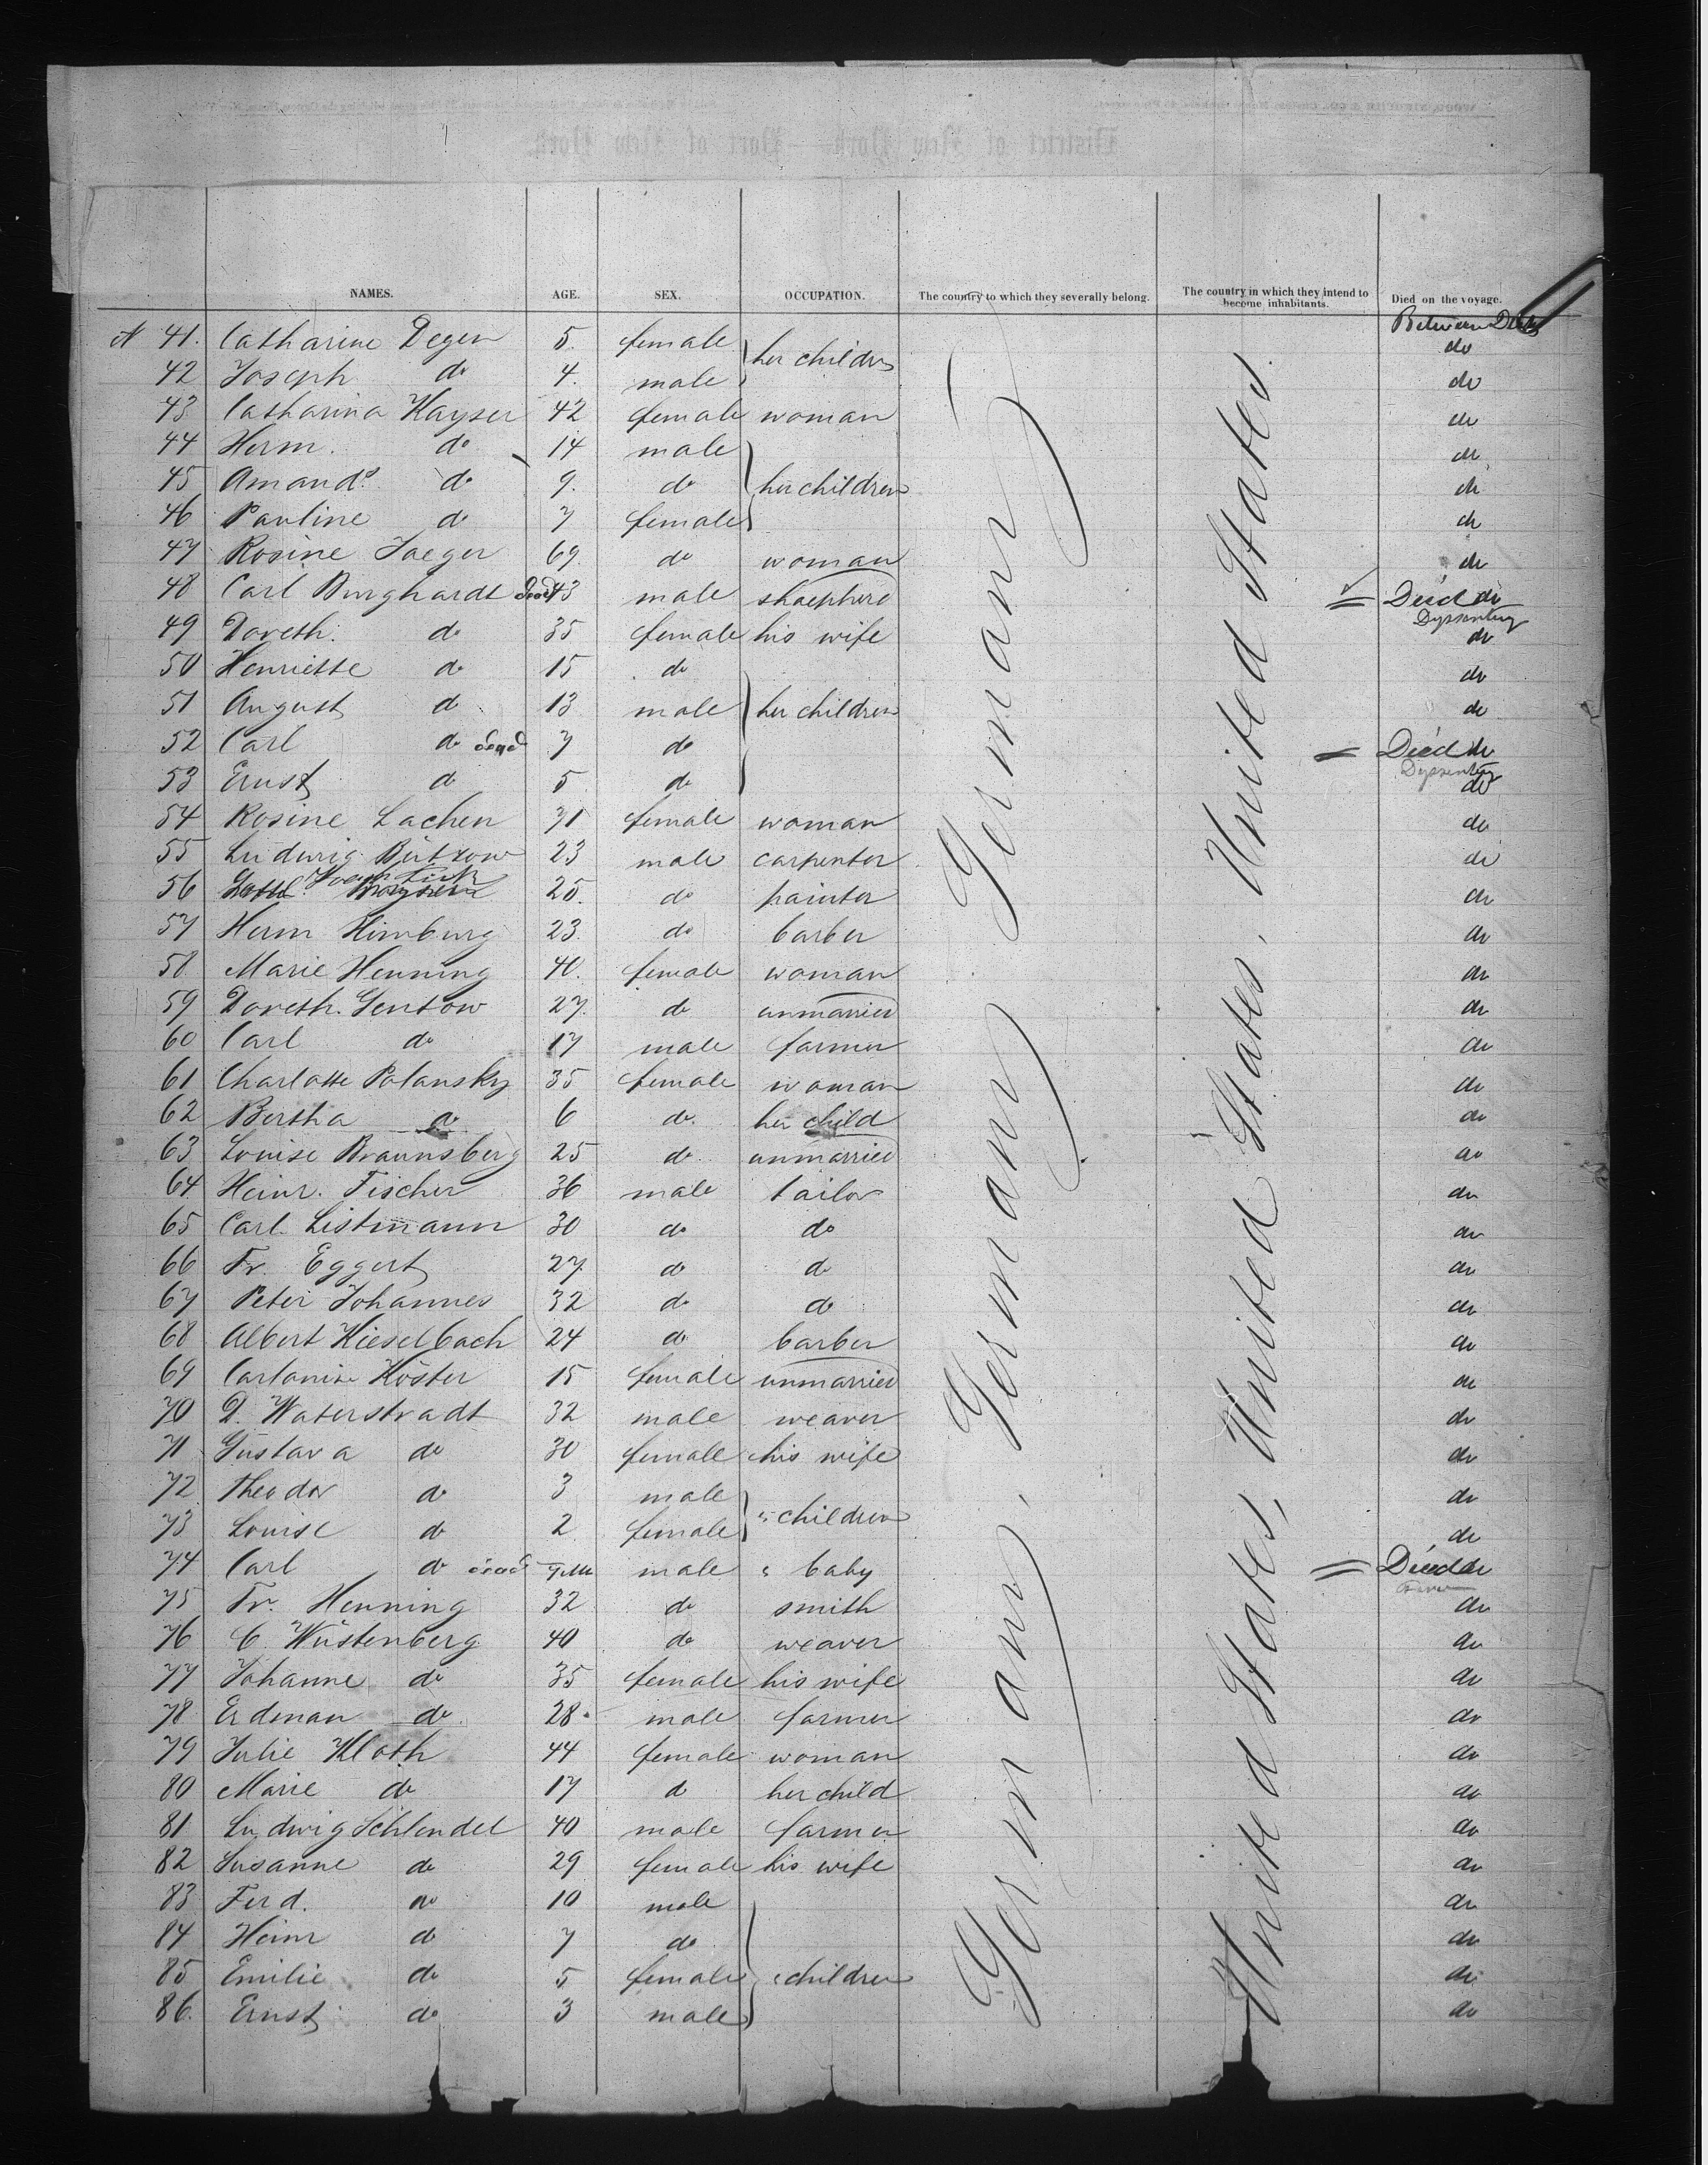 District of New York - Port of New York.
NAMES. AGE. SEX. OCCUPATION. The country to which they severally belong. The country in which they intend to become inhabitants. Died on the voyage.
Between Decks
N 41. Catharine Degen 5. female her children do
42 Joseph do 4. male do
43 Catharina Kayser 42 female woman do
44 Herm. do 14 male her children do
45 Amand do 9. do do
46 Pauline do 7 female do
47 Rosine Jaeger 69. do woman do
48 Carl Burghardt dead 43 male shaepherd Died do
Dyssentery
49 Doreth. do 35 female his wife do
50 Henriette do 15 do her children do
51 August do 13 male do
52 Carl do dead 7 do Died do
Dyssentery
53 Ernst do 5 do do
54 Rosine Lachen 31 female woman do
55 Ludwig Bützow 23 male carpenter do
56 25. do painter do
57 Herm Himburg 23. do barber do
58 Marie Henning 40. female woman do
59 Doreth. Gentow 27. do unmarried do
60 Carl do 17 male farmer do
61 Charlotte Polansky 35 female woman do
62 Bertha do 6 do. her child do
63 Louise Braunsberg 25 do unmarried do
64 Heinr. Fischer 36 male tailor do
65 Carl Listmann 30 do do do
66 Fr. Eggert 27. do do do
67 Peter Johannes 32 do do do
68 Albert Kieselbach 24 do barber do
69 Köster 15 female unmarried do
70 D. Waterstradt 32 male weaver do
71 Gustava do 30 female his wife do
72 Theodor do 3 male " children do
73 Louise do 2 female do
74 Carl do dead male " baby Died do
75 Fr. Henning 32 do smith do
76 C. Wüstenberg 40 do weaver do
77 Johanne do 35 female his wife do
78 Erdman do 28. male farmer do
79 Julie Kloth 44 female woman do
80 Marie do 17 do her child do
81 Ludwig Schlendel 40 male farmer do
82 Susanne do 29 female his wife do
83 Ferd. do 10 male " children do
84 Heinr do 7 do do
85 Emilie do 5 female do
86. Ernst do 3 male do
Germany, Germany, Germany
United States, United States, United States, United States